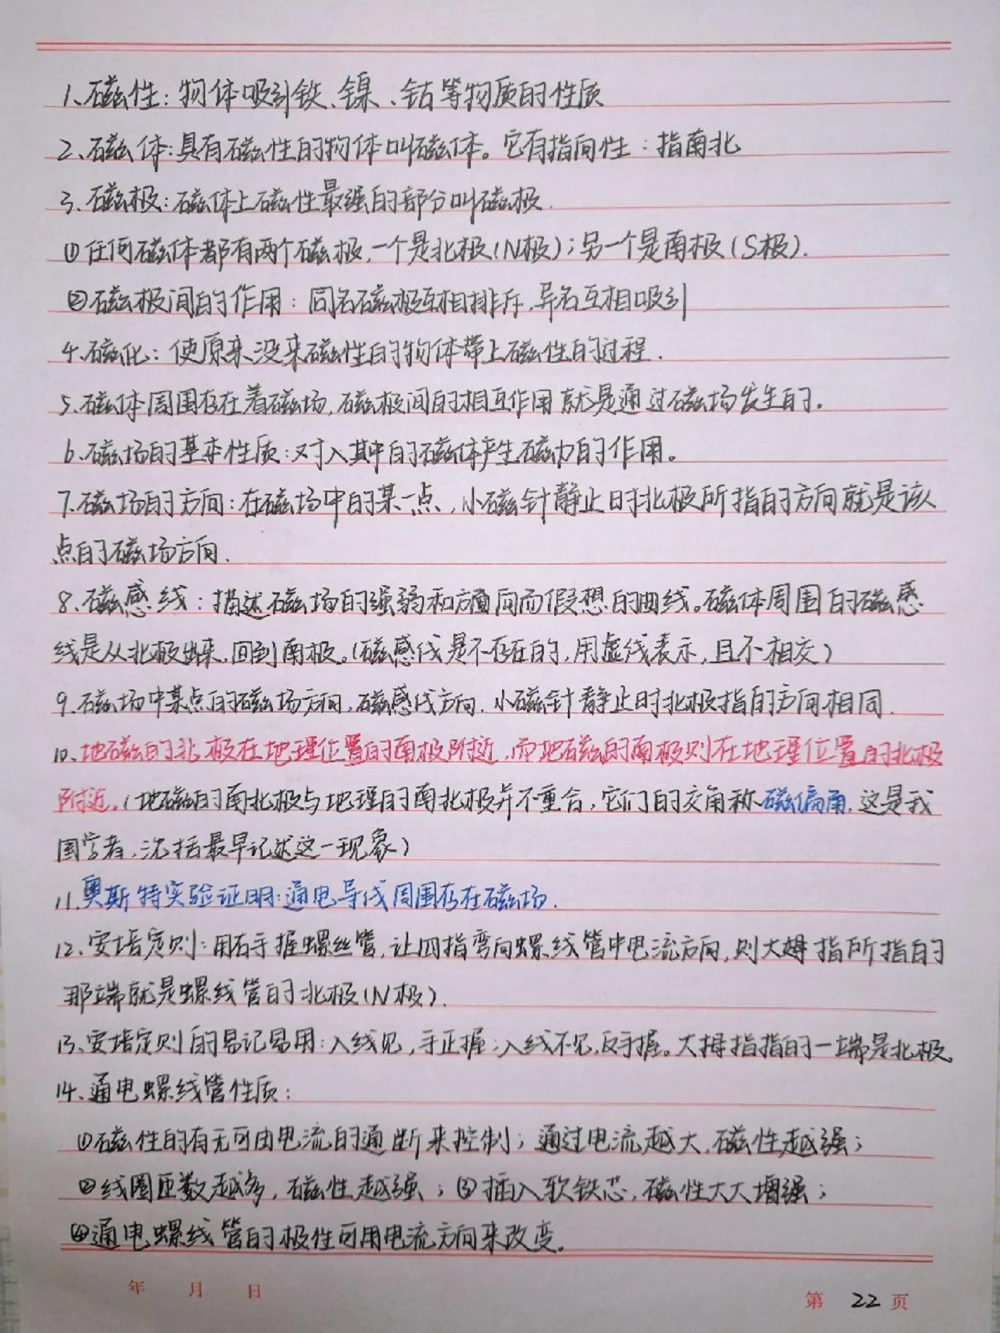 1、磁性：物体吸引铁、镍、钴等物质的性质
2、磁体：具有磁性的物体叫磁体。它有指向性：指南北
3、磁极：磁体上磁性最强的部分叫磁极.
①任何磁体都有两个磁极,一个是北极(N极)；另一个是南极(S极).
②磁极间的作用：同名磁极互相排斥,异名互相吸引
4.磁化：使原来没来磁性的物体带上磁性的过程.
5.磁体周围存在着磁场,磁极间的相互作用就是通过磁场发生的.
6.磁场的基本性质：对入其中的磁体产生磁力的作用。
7.磁场的方向：在磁场中的某一点,小磁针静止时北极所指的方向就是该
点的磁场方向.
8.磁感线：描述磁场的强弱和方向而假想的曲线。磁体周围的磁感
线是从北极出来,回到南极。(磁感线是不存在的,用虚线表示,且不相交)
9.磁场中某点的磁场方向,磁感线方向.小磁针静止时北极指的方向相同.
10.地磁的北极在地理位置的南极附近.而地磁的南极则在地理位置的北极
附近。(地磁的南北极与地理的南北极并不重合,它们的交角称磁偏角,这是我
国学者,沈括最早记述这一现象)
11.奥斯特实验证明：通电导线周围存在磁场.
12.安培定则：用右手握螺丝管,让四指弯向螺线管中电流方向,则大姆指所指的
那端就是螺线管的北极(N极).
13.安培定则的易记易用：入线见,手正握；入线不见,反手握。大拇指指的一端是北极.
14.通电螺线管性质：
①磁性的有无可由电流的通断来控制；通过电流越大,磁性越强；
②线圈匝数越多,磁性越强；③插入软铁芯,磁性大大增强；
④通电螺线管的极性可用电流方向来改变。
年 月 日
第 22 页